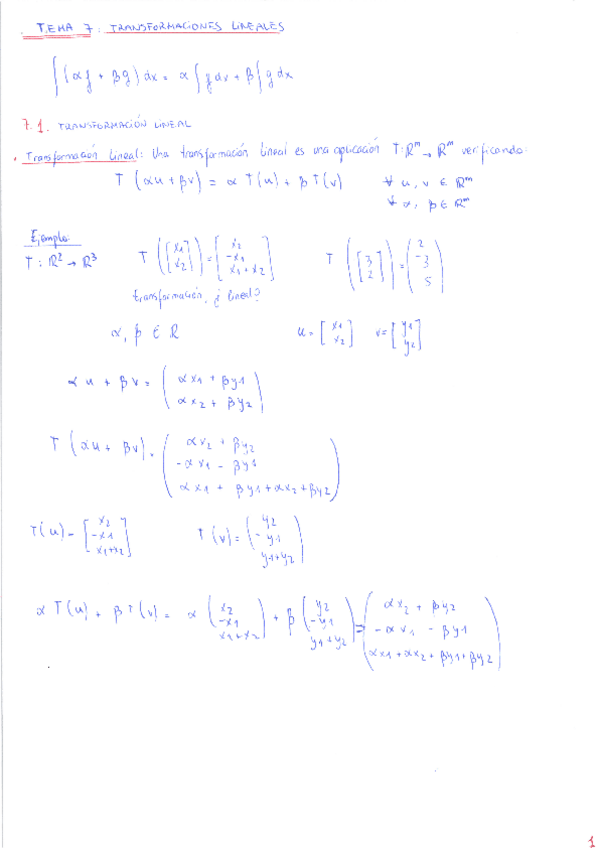 . TEMA 7 : TRANSFORMACIONES LINEALES
∫(αf + βg) dx = α∫f dx + β∫g dx
7.1. TRANSFORMACIÓN LINEAL
. Transformación Lineal: Una transformación lineal es una aplicación T: ℝᵐ → ℝᵐ verificando:
T (αu + βv) = α T(u) + β T(v)   ∀ u, v ∈ ℝᵐ
∀ α, β ∈ ℝᵐ
Ejemplo:
T: ℝ² → ℝ³   T([x1; x2]) = [x2; -x1; x1 + x2]   T([3; 2]) = (2; -3; 5)
transformación, ¿lineal?
α, β ∈ ℝ   u = [x1; x2]   v = [y1; y2]
αu + βv = (αx1 + βy1; αx2 + βy2)
T (αu + βv) = (αx2 + βy2; -αx1 - βy1; αx1 + βy1 + αx2 + βy2)
T(u) = [x2; -x1; x1+x2]   T(v) = (y2; -y1; y1+y2)
α T(u) + β T(v) = α (x2; -x1; x1+x2) + β (y2; -y1; y1+y2) = (αx2 + βy2; -αx1 - βy1; αx1 + αx2 + βy1 + βy2)
1